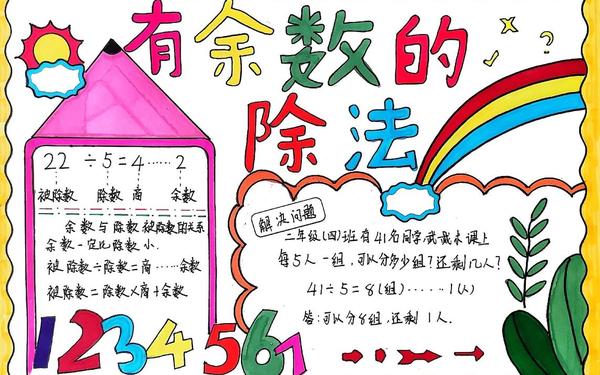 有余数的
除法
22 ÷5=4……2
被除数 除数 商 余数
余数与除数被除数的关系
余数一定比除数小.
被除数÷除数=商……余数
被除数=除数×商+余数
解决问题
三年级(四)班有41名同学,武术课上
每5人一组,可以分多少组?还剩几人?
41÷5=8(组)……1(人)
答:可以分8组,还剩1人.
1234567